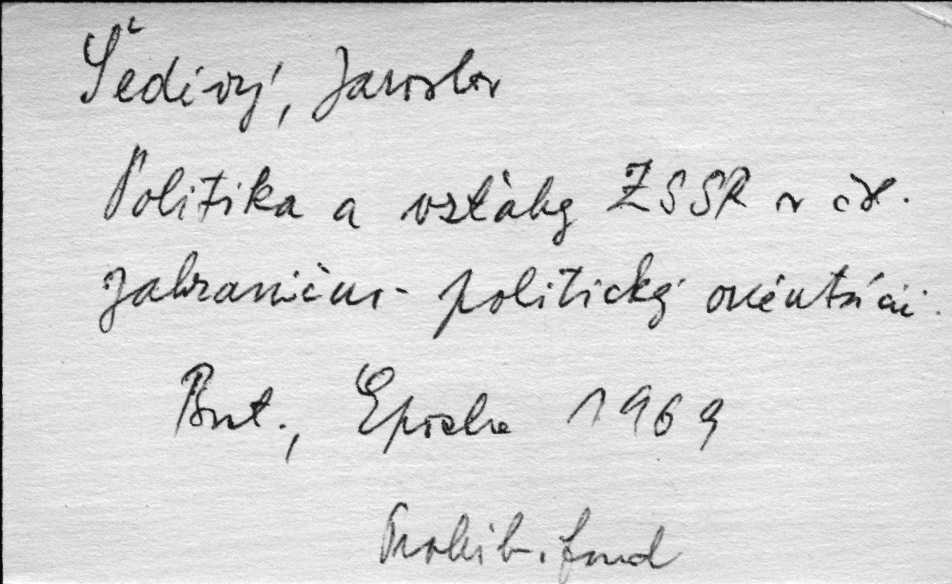 Šedivý, Jaroslav
Politika a vzťahy ZSSR v čsl.
zahranično-politickej orientácii.
Brat., Epocha 1969
Prohib. fond